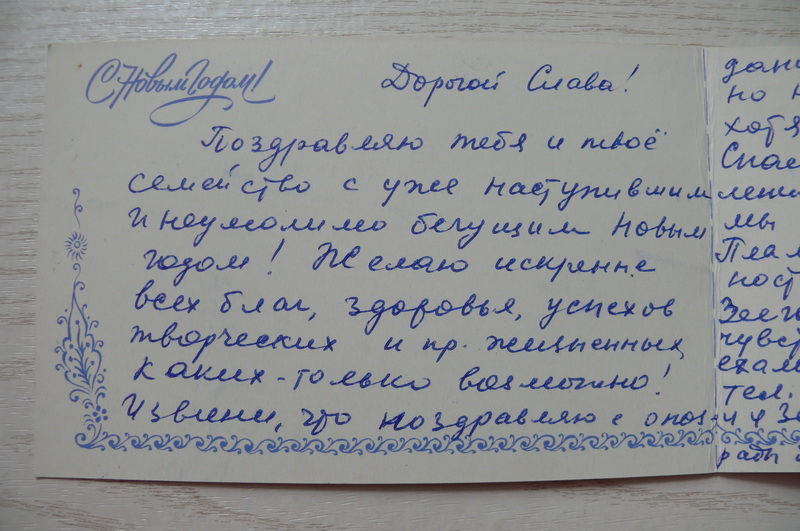 С Новым Годом!
Дорогой Слава!
Поздравляю тебя и твоё
семейство с уже наступившим
и неумолимо бегущим Новым
годом! Желаю искренне
всех благ, здоровья, успехов
творческих и пр. жизненных,
каких-только возможно!
Извини, что поздравляю с опоз-
но
хотя
мы
чувст
тел.